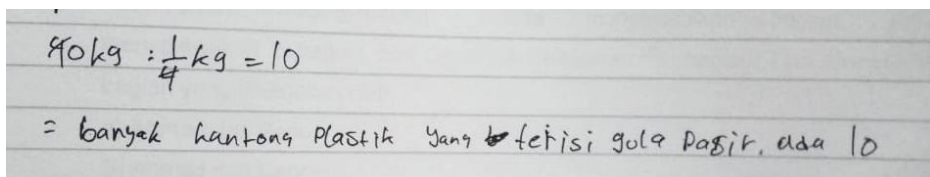 40kg : 1/4 kg = 10
= banyak kantong plastik yang terisi gula pasir. ada 10